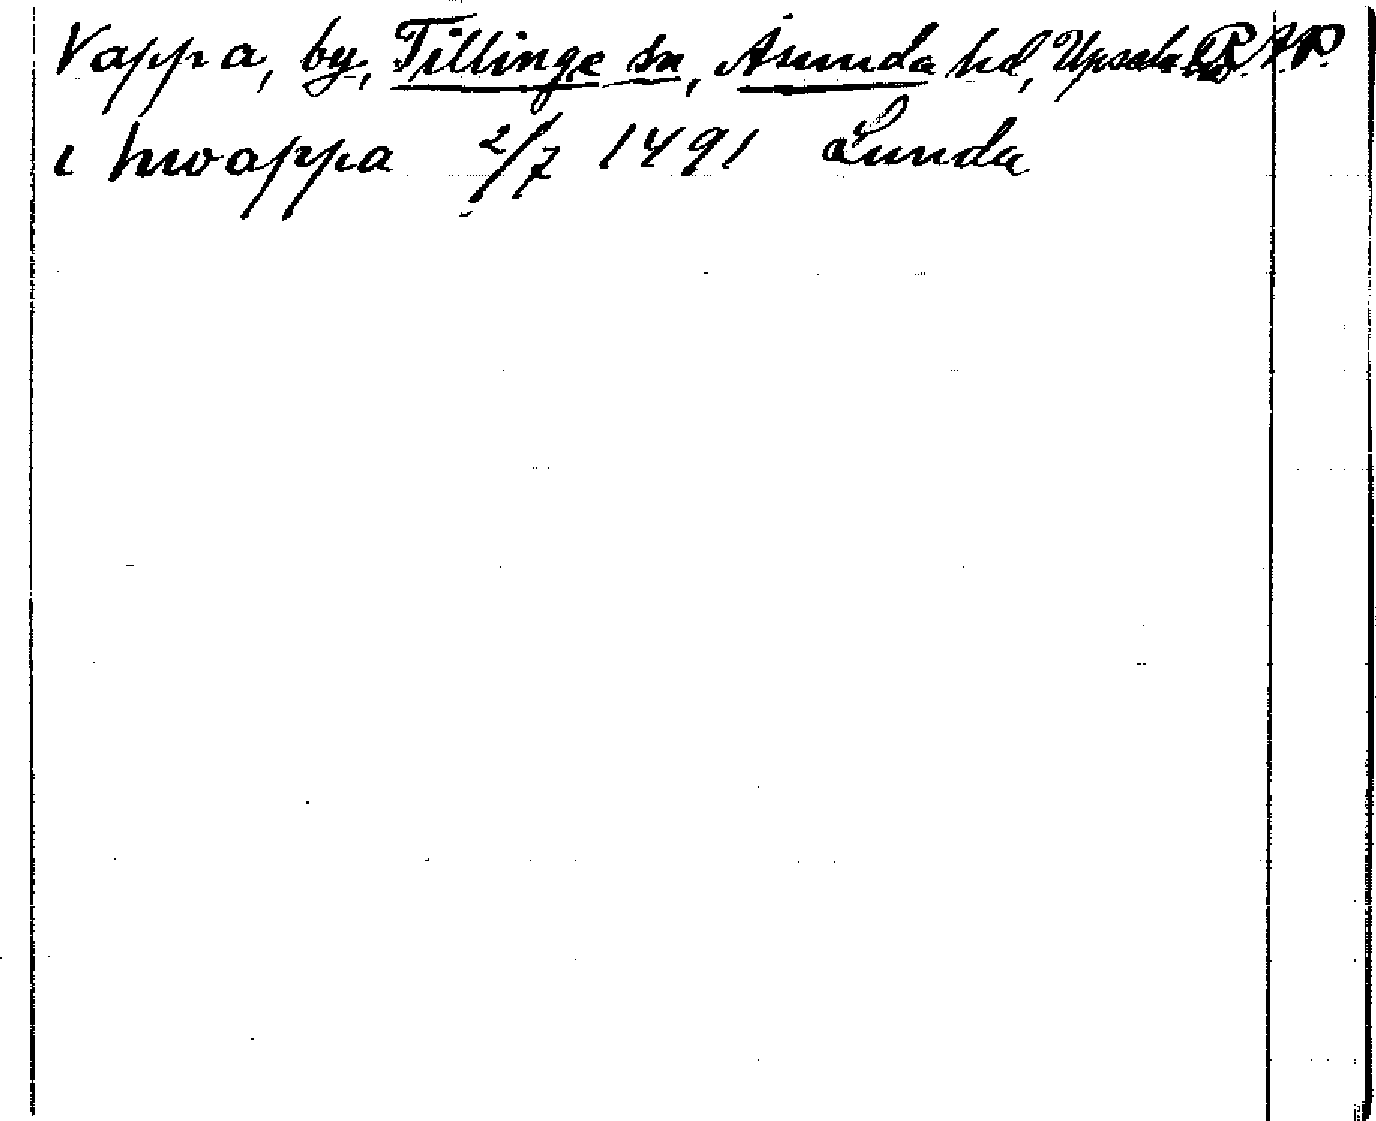 Vappa, by, Tillinge sn, Åsunda hd, Upsala
i hwappa 2/7 1491 Lunda